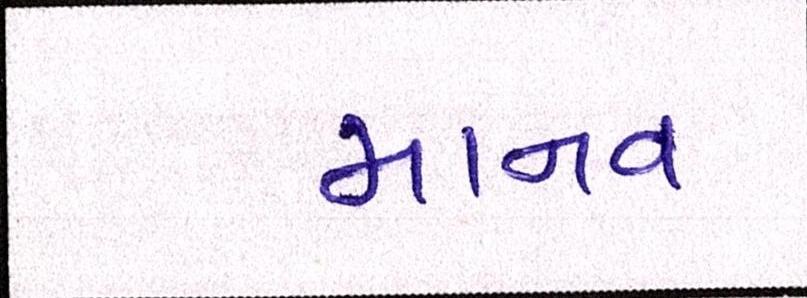 માનવ